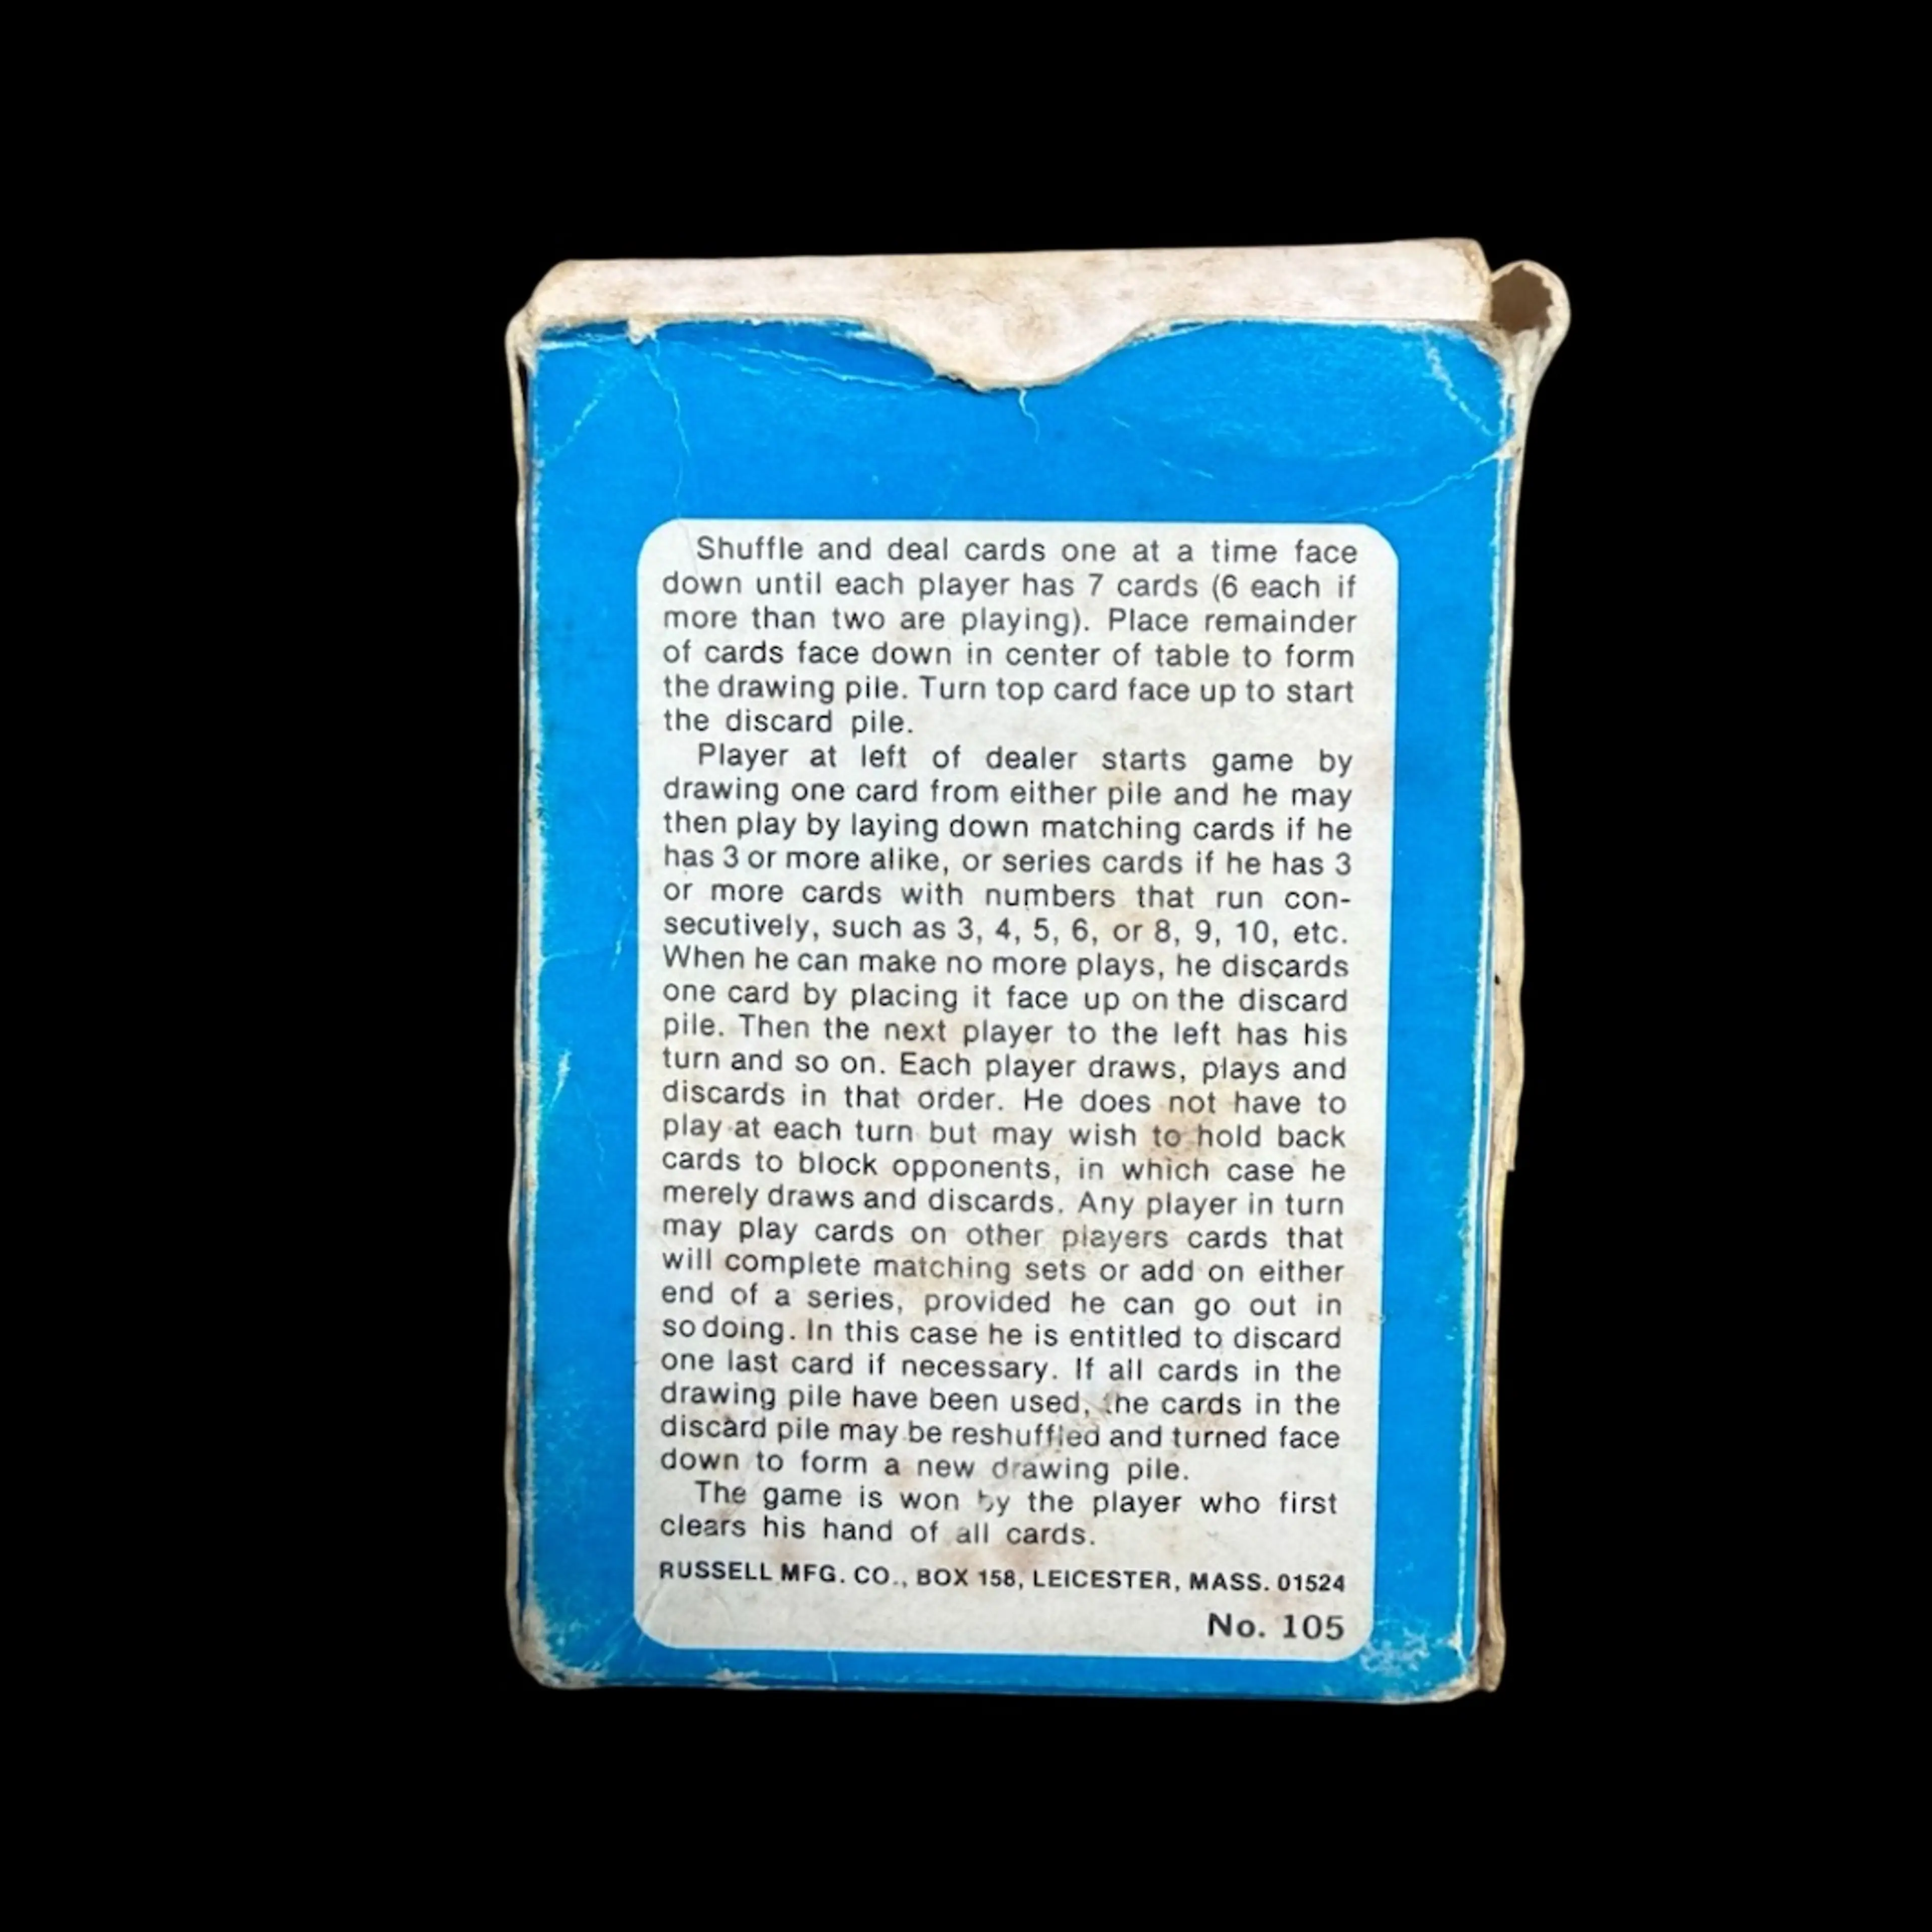 Shuffle and deal cards one at a time face
down until each player has 7 cards (6 each if
more than two are playing). Place remainder
of cards face down in center of table to form
the drawing pile. Turn top card face up to start
the discard pile.
Player at left of dealer starts game by
drawing one card from either pile and he may
then play by laying down matching cards if he
has 3 or more alike, or series cards if he has 3
or more cards with numbers that run con-
secutively, such as 3, 4, 5, 6, or 8, 9, 10, etc.
When he can make no more plays, he discards
one card by placing it face up on the discard
pile. Then the next player to the left has his
turn and so on. Each player draws, plays and
discards in that order. He does not have to
play at each turn but may wish to hold back
cards to block opponents, in which case he
merely draws and discards. Any player in turn
may play cards on other players cards that
will complete matching sets or add on either
end of a series, provided he can go out in
so doing. In this case he is entitled to discard
one last card if necessary. If all cards in the
drawing pile have been used, the cards in the
discard pile may be reshuffled and turned face
down to form a new drawing pile.
The game is won by the player who first
clears his hand of all cards.
RUSSELL MFG. CO., BOX 158, LEICESTER, MASS. 01524
No. 105